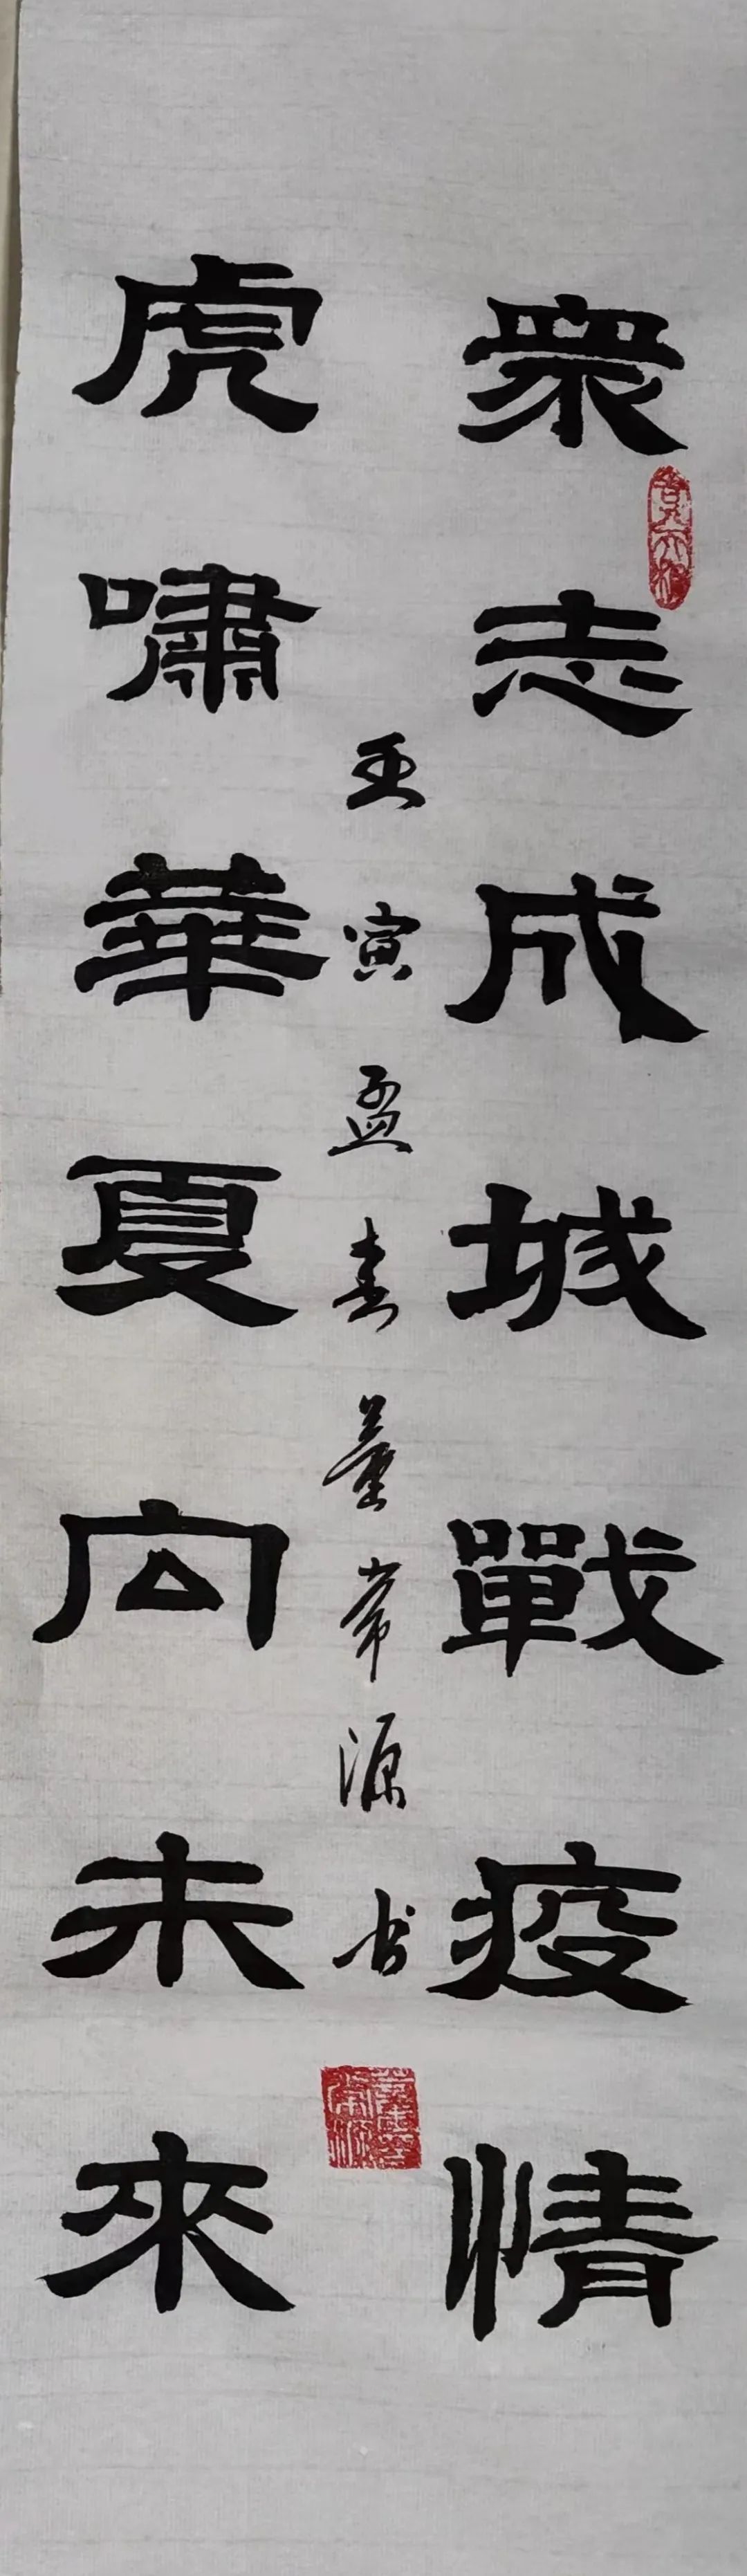 眾志成城戰疫情
虎嘯華夏向未來
壬寅孟春董常源书